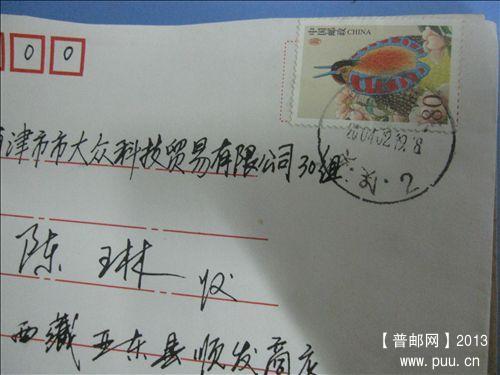 中国邮政 CHINA
80
0 0
2004.02.19.18
津市市大众科技贸易有限公司30组
陈 琳 收
西藏亚东县顺发商店
【普邮网】2013
www.puu.cn